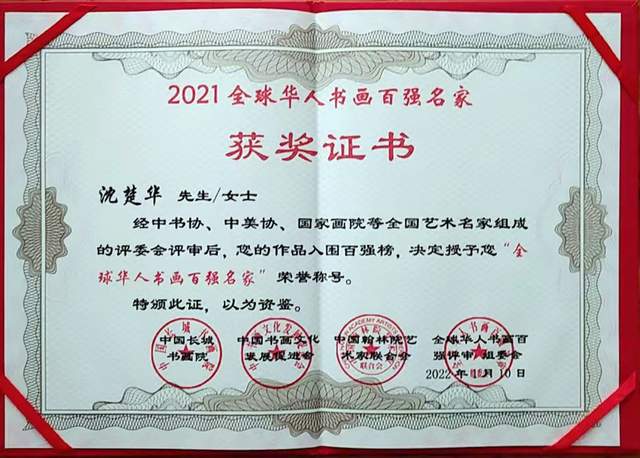 2021全球华人书画百强名家
获奖证书
沈楚华 先生/女士
经中书协、中美协、国家画院等全国艺术名家组成
的评委会评审后，您的作品入围百强榜，决定授予您“全
球华人书画百强名家”荣誉称号。
特颁此证，以为资鉴。
中国长城 中国书画文化 中国翰林院艺 全球华人书画百
书画院 发展促进会 术家联合会 强评审 组委会
2022年 月10日